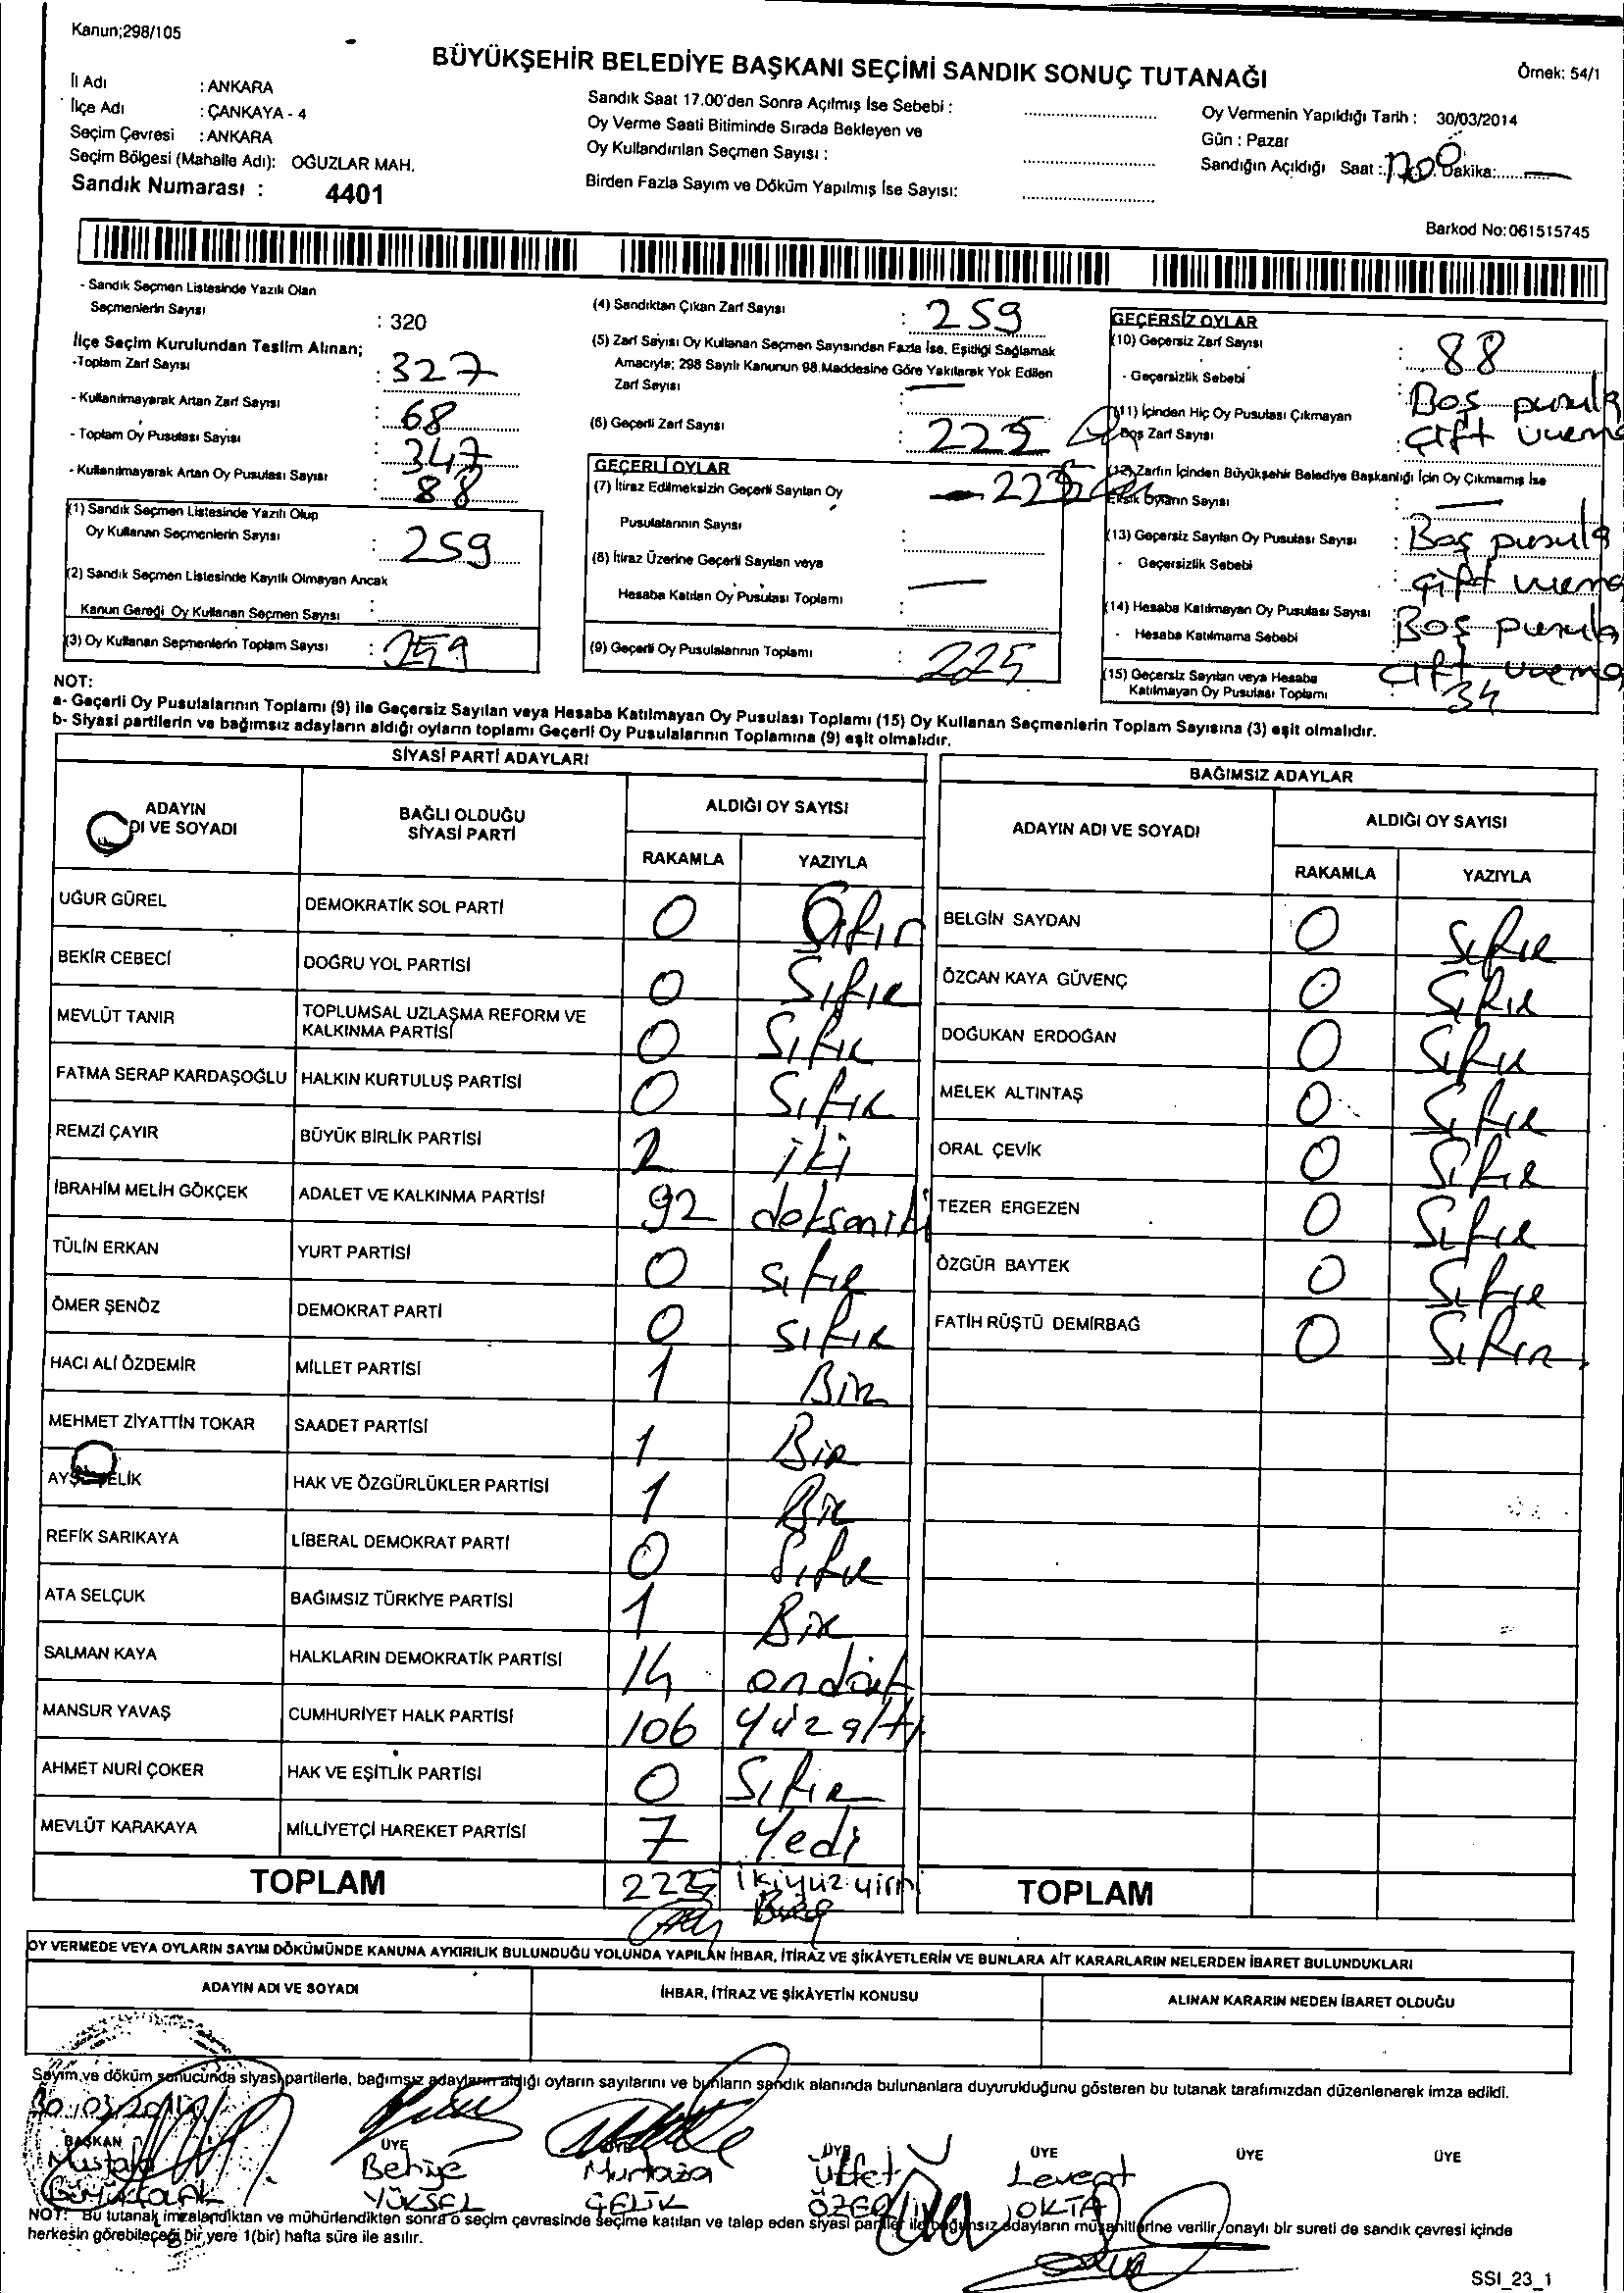 Kanun;298/105
BÜYÜKŞEHİR BELEDİYE BAŞKANI SEÇİMİ SANDIK SONUÇ TUTANAĞI
Örnek: 54/1
İl Adı : ANKARA
İlçe Adı : ÇANKAYA - 4
Seçim Çevresi : ANKARA
Seçim Bölgesi (Mahalle Adı): OĞUZLAR MAH.
Sandık Numarası : 4401
Sandık Saat 17.00'den Sonra Açılmış İse Sebebi :
Oy Verme Saati Bitiminde Sırada Bekleyen ve
Oy Kullandırılan Seçmen Sayısı :
Birden Fazla Sayım ve Döküm Yapılmış İse Sayısı:
Oy Vermenin Yapıldığı Tarih : 30/03/2014
Gün : Pazar
Sandığın Açıldığı Saat : Dakika:
Barkod No:061515745
- Sandık Seçmen Listesinde Yazılı Olan
Seçmenlerin Sayısı : 320
İlçe Seçim Kurulundan Teslim Alınan;
-Toplam Zarf Sayısı : 327
- Kullanılmayarak Artan Zarf Sayısı : 68
- Toplam Oy Pusulası Sayısı : 347
- Kullanılmayarak Artan Oy Pusulası Sayısı : 88
(1) Sandık Seçmen Listesinde Yazılı Olup
Oy Kullanan Seçmenlerin Sayısı : 259
(2) Sandık Seçmen Listesinde Kayıtlı Olmayan Ancak
Kanun Gereği Oy Kullanan Seçmen Sayısı :
(3) Oy Kullanan Seçmenlerin Toplam Sayısı : 259
(4) Sandıktan Çıkan Zarf Sayısı : 259
(5) Zarf Sayısı Oy Kullanan Seçmen Sayısından Fazla İse, Eşitliği Sağlamak
Amacıyla; 298 Sayılı Kanunun 98.Maddesine Göre Yakılarak Yok Edilen
Zarf Sayısı : —
(6) Geçerli Zarf Sayısı : 225
GEÇERLİ OYLAR
(7) İtiraz Edilmeksizin Geçerli Sayılan Oy
Pusulalarının Sayısı : 225
(8) İtiraz Üzerine Geçerli Sayılan veya
Hesaba Katılan Oy Pusulası Toplamı : —
(9) Geçerli Oy Pusulalarının Toplamı : 225
GEÇERSİZ OYLAR
(10) Geçersiz Zarf Sayısı : 88
- Geçersizlik Sebebi : Boş pusula
(11) İçinden Hiç Oy Pusulası Çıkmayan
Boş Zarf Sayısı : Çift
(12) Zarfın İçinden Büyükşehir Belediye Başkanlığı İçin Oy Çıkmamış İse
Eksik Oyların Sayısı : —
(13) Geçersiz Sayılan Oy Pusulası Sayısı : Boş pusula
- Geçersizlik Sebebi : Çift
(14) Hesaba Katılmayan Oy Pusulası Sayısı : Boş pusula
- Hesaba Katılmama Sebebi : Çift
(15) Geçersiz Sayılan veya Hesaba
Katılmayan Oy Pusulası Toplamı 34
NOT:
a- Geçerli Oy Pusulalarının Toplamı (9) ile Geçersiz Sayılan veya Hesaba Katılmayan Oy Pusulası Toplamı (15) Oy Kullanan Seçmenlerin Toplam Sayısına (3) eşit olmalıdır.
b- Siyasi partilerin ve bağımsız adayların aldığı oyların toplamı Geçerli Oy Pusulalarının Toplamına (9) eşit olmalıdır.
SİYASİ PARTİ ADAYLARI
ADAYIN
DI VE SOYADI
BAĞLI OLDUĞU
SİYASİ PARTİ
ALDIĞI OY SAYISI
RAKAMLA YAZIYLA
UĞUR GÜREL DEMOKRATİK SOL PARTİ 0 Sıfır
BEKİR CEBECİ DOĞRU YOL PARTİSİ 0 Sıfır
MEVLÜT TANIR TOPLUMSAL UZLAŞMA REFORM VE
KALKINMA PARTİSİ 0 Sıfır
FATMA SERAP KARDAŞOĞLU HALKIN KURTULUŞ PARTİSİ 0 Sıfır
REMZİ ÇAYIR BÜYÜK BİRLİK PARTİSİ 2 iki
İBRAHİM MELİH GÖKÇEK ADALET VE KALKINMA PARTİSİ 92 doksaniki
TÜLİN ERKAN YURT PARTİSİ 0 sıfır
ÖMER ŞENÖZ DEMOKRAT PARTİ 0 sıfır
HACI ALİ ÖZDEMİR MİLLET PARTİSİ 1 Bir
MEHMET ZİYATTİN TOKAR SAADET PARTİSİ 1 Bir
AYŞE ÇELİK HAK VE ÖZGÜRLÜKLER PARTİSİ 1 Bir
REFİK SARIKAYA LİBERAL DEMOKRAT PARTİ 0 Sıfır
ATA SELÇUK BAĞIMSIZ TÜRKİYE PARTİSİ 1 Bir
SALMAN KAYA HALKLARIN DEMOKRATİK PARTİSİ 14 ondört
MANSUR YAVAŞ CUMHURİYET HALK PARTİSİ 106 yüzaltı
AHMET NURİ ÇOKER HAK VE EŞİTLİK PARTİSİ 0 Sıfır
MEVLÜT KARAKAYA MİLLİYETÇİ HAREKET PARTİSİ 7 Yedi
TOPLAM 225 ikiyüz
BAĞIMSIZ ADAYLAR
ADAYIN ADI VE SOYADI
ALDIĞI OY SAYISI
RAKAMLA YAZIYLA
BELGİN SAYDAN 0 Sıfır
ÖZCAN KAYA GÜVENÇ 0 Sıfır
DOĞUKAN ERDOĞAN 0 Sıfır
MELEK ALTINTAŞ 0 Sıfır
ORAL ÇEVİK 0 Sıfır
TEZER ERGEZEN 0 Sıfır
ÖZGÜR BAYTEK 0 Sıfır
FATİH RÜŞTÜ DEMİRBAĞ 0 Sıfır
TOPLAM
OY VERMEDE VEYA OYLARIN SAYIM DÖKÜMÜNDE KANUNA AYKIRILIK BULUNDUĞU YOLUNDA YAPILAN İHBAR, İTİRAZ VE ŞİKÂYETLERİN VE BUNLARA AİT KARARLARIN NELERDEN İBARET BULUNDUKLARI
ADAYIN ADI VE SOYADI
İHBAR, İTİRAZ VE ŞİKÂYETİN KONUSU
ALINAN KARARIN NEDEN İBARET OLDUĞU
Sayım ve döküm sonucunda siyasi partilerle, bağımsız adayların aldığı oyların sayılarını ve bunların sandık alanında bulunanlara duyurulduğunu gösteren bu tutanak tarafımızdan düzenlenerek imza edildi.
30.03.2014
BAŞKAN ÜYE ÜYE ÜYE ÜYE ÜYE ÜYE
Mustafa Behiye Murtaza Ülfet Levent
YÜKSEL ÇELİK OKTA
NOT: Bu tutanak imzalandıktan ve mühürlendikten sonra o seçim çevresinde seçime katılan ve talep eden siyasi partiler ile bağımsız adayların müşahitlerine verilir, onaylı bir sureti de sandık çevresi içinde
herkesin görebileceği bir yere 1(bir) hafta süre ile asılır.
SSI_23_1